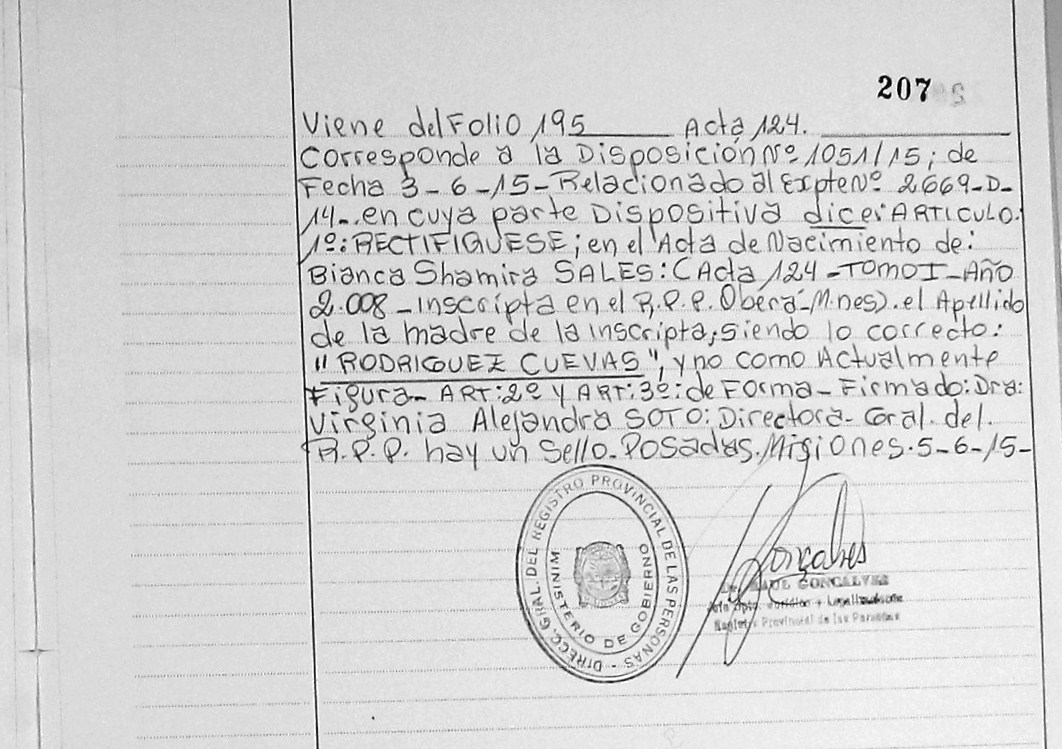 207
Viene del Folio 195 Acta 124.
Corresponde a la Disposición Nº 1051/15; de
Fecha 3-6-15-Relacionado al Expte Nº 2669-D-
14-. en cuya parte Dispositiva dice: ARTICULO.
1º: RECTIFIQUESE; en el Acta de Nacimiento de:
Bianca Shamira SALES: (Acta 124-TOMO I-Año
2.008-inscripta en el R.P.P. Oberá-Mnes). el Apellido
de la madre de la inscripta, siendo lo correcto:
"RODRIGUEZ CUEVAS", y no como Actualmente
Figura- ART: 2º y ART: 3º: de Forma- Firmado: Dra:
Virginia Alejandra SOTO: Directora- Gral. del.
R.P.P. hay un Sello-Posadas. Misiones. 5-6-15-
DIRECC. GRAL. DEL REGISTRO PROVINCIAL DE LAS PERSONAS -
MINISTERIO DE GOBIERNO
Gonçalves
GONCALVES
Jurídico y
Provincial de las Personas